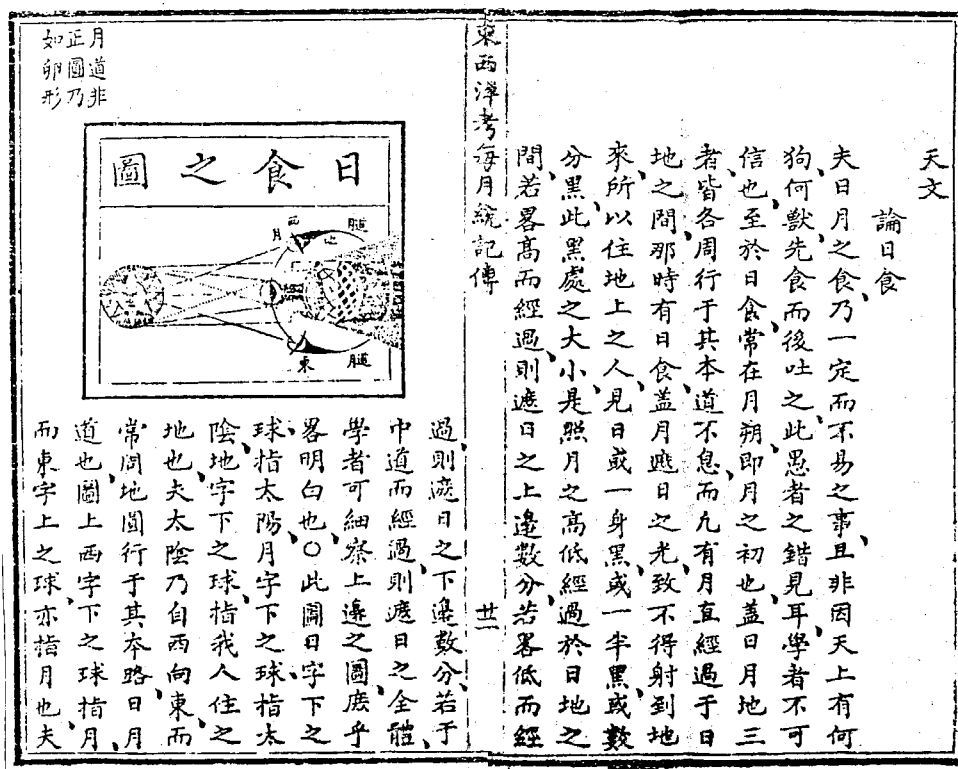 天文
論日食
夫日月之食乃一定而不易之事且非因天上有何
狗何獸先食而後吐之此愚者之錯見耳學者不可
信也至於日食常在月朔即月之初也盖日月地三
者皆各周行于其本道不息而凡有月直經過于日
地之間那時有日食盖月遮日之光致不得射到地
來所以住地上之人見日或一身黑或一半黑或數
分黑此黑處之大小是照月之高低經過於日地之
間若畧高而經過則遮日之上邊數分若畧低而經
東西洋考每月統記傳
廿二
月道非
正圓乃
如卵形
日食之圖
西
月
道
東
道
過則遮日之下邊數分若于
中道而經過則遮日之全體
學者可細察上邊之圖庶乎
畧明白也〇此圖日字下之
球指太陽月字下之球指太
陰地字下之球指我人住之
地也夫太陰乃自西向東而
常周地圓行于其本路日月
道也圖上西字下之球指月
而東字上之球亦指月也夫